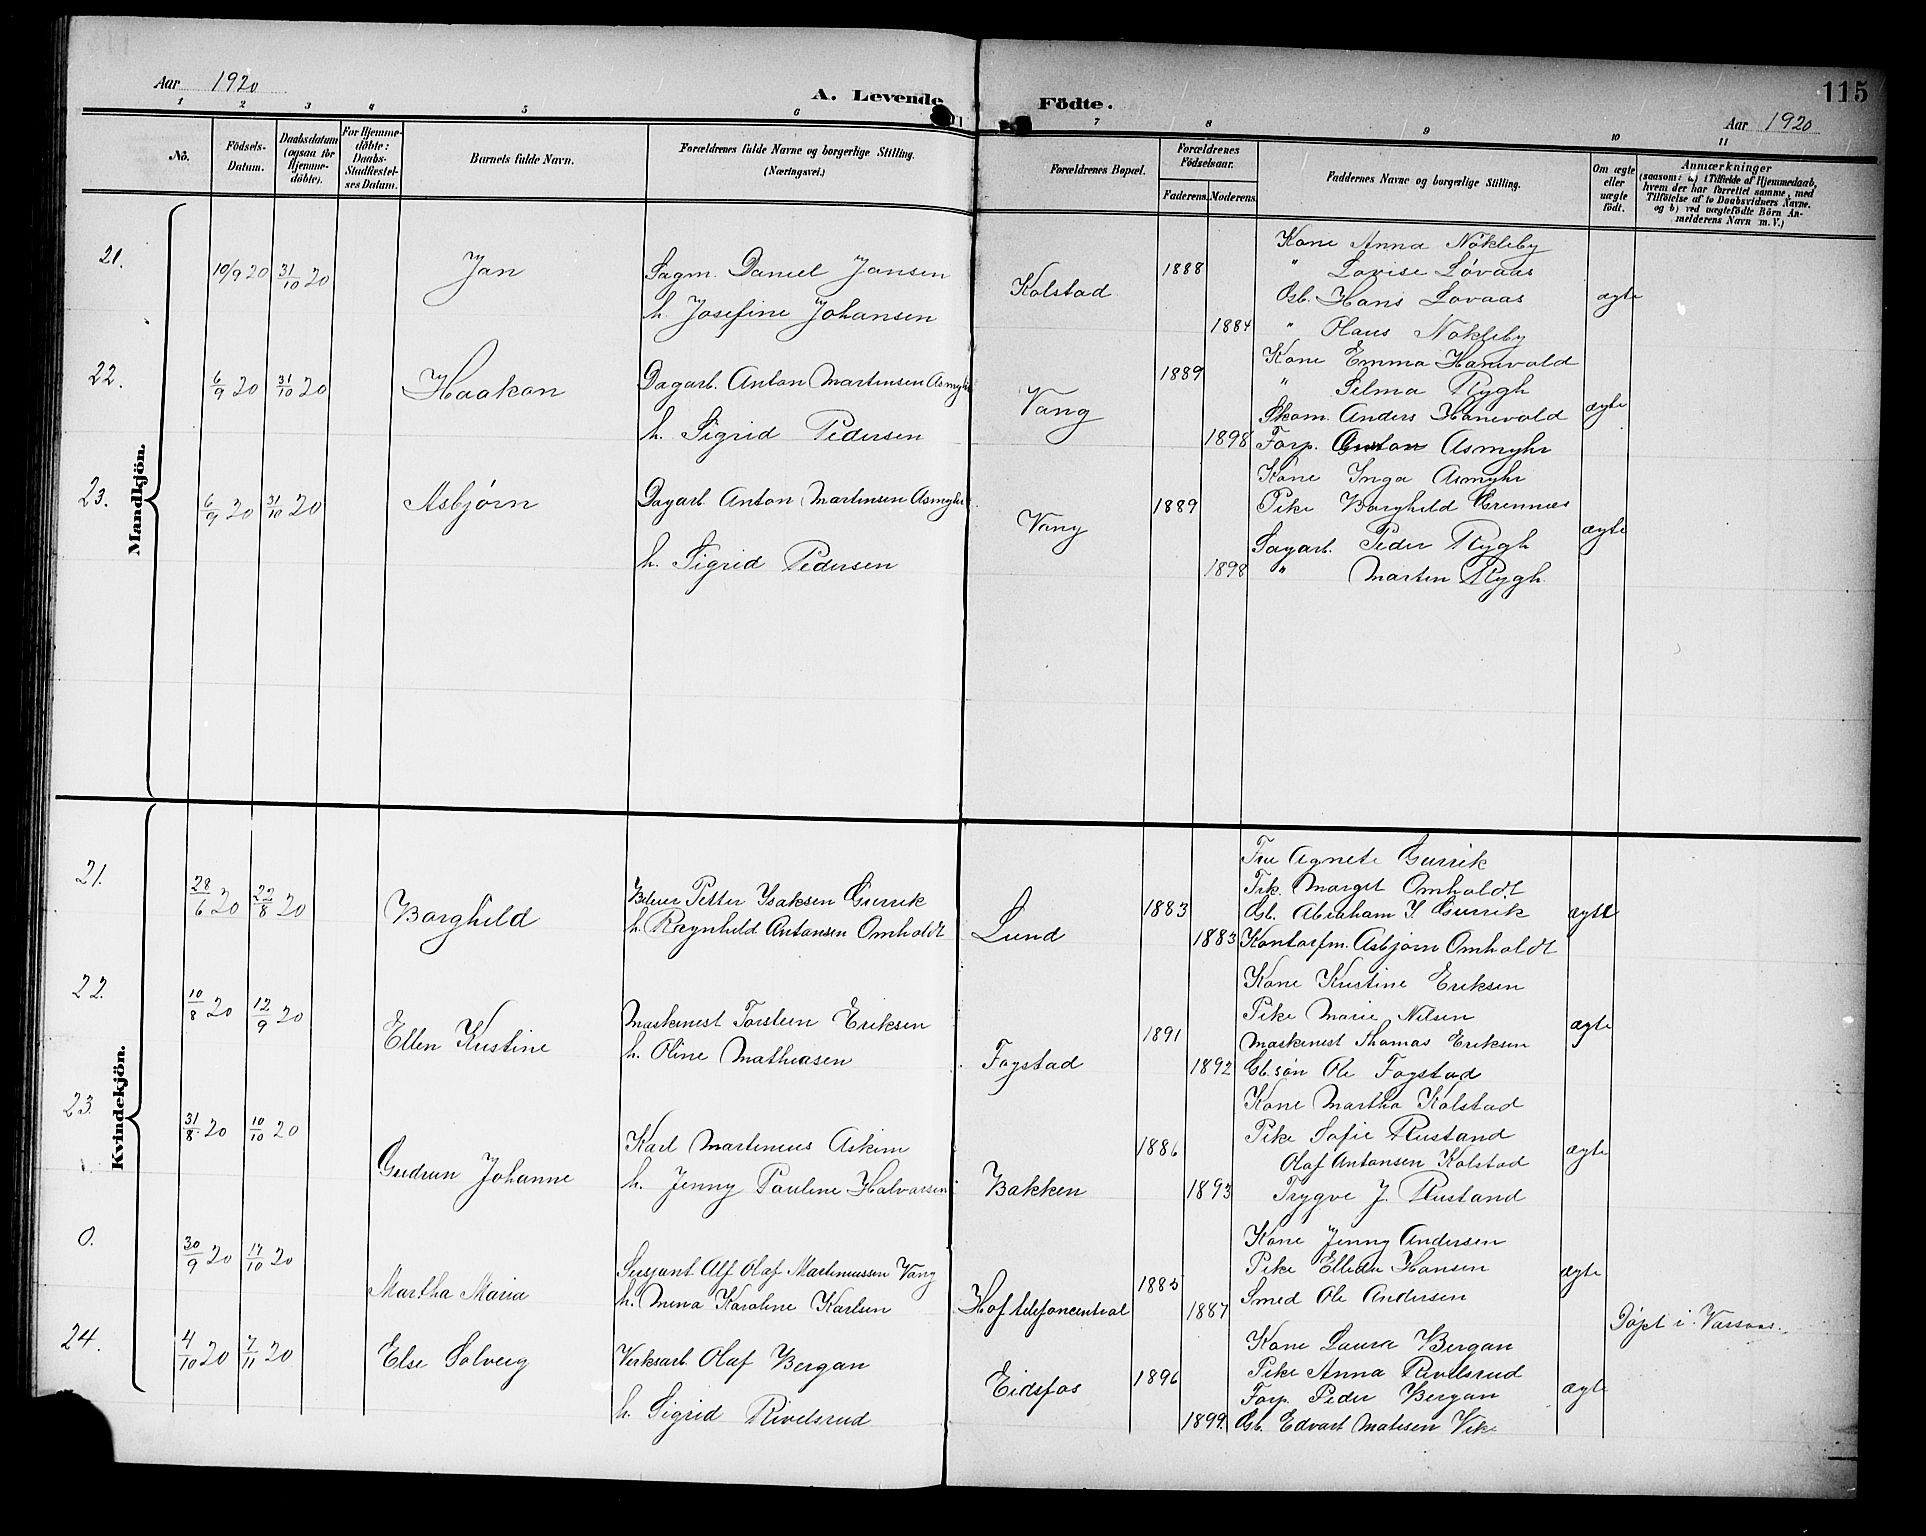 Aar 1920
A. Levende Födte.
115
Aar 1920
1 2 3 4 5 6 7 8 9 10 11
No.
Födsels-
Datum.
Daabsdatum
(ogsaa for
Hjemme-
döbte).
For Hjemme-
döbte:
Daabs-
Stadfæstel-
ses Datum.
Barnets fulde Navn.
Forældrenes fulde Navne og borgerlige Stilling.
(Næringsvei.)
Forældrenes Bopæl.
Forældrenes
Födselsaar.
Faderens. Moderens.
Faddernes Navne og borgerlige Stilling.
Om ægte
eller
uægte
født.
Anmærkninger
(saasom: a) i Tilfælde af Hjemmedaab,
hvem der har forrettet samme, med
Tilföielse af to Daabsvidners Navne.
og b) ved uægtefödte Börn An-
melderens Navn m. V.)
Mandkjön.
21.
10/9 20
31/10 20
Jan
Sagm. Daniel Jansen
h. Josefine Johansen
Kolstad
1888
1884
Kone Anna Nökleby
" Lovise Løvaas
Gsb. Hans Lovaas
" Olaus Nökleby
ægte
22.
6/9 20
31/10 20
Haakon
Dagarb. Anton Martinsen Asmyhr
h. Sigrid Pedersen
Vang
1889
1898
Kone Emma Hanevold
" Selma Rygh
Skom. Anders Hanevold
Forp. Anton Asmyhr
ægte
23.
6/9 20
31/10 20
Asbjørn
Dagarb. Anton Martinsen Asmyhr
h. Sigrid Pedersen
Vang
1889
1898
Kone Inga Asmyhr
Pike Borghild Grennæs
Sagarb. Peder Rygh
" Martin Rygh.
ægte
Kvindekjön.
21.
28/6 20
22/8 20
Borghild
Petter Isaksen Gurrik
h. Ragnhild Antonsen Omholdt
Lund
1883
1883
Fru Agnete Gurrik
Frk. Margit Omholdt
Gb. Abraham I. Gurrik
Kontorfm. Asbjørn Omholdt
ægte
22.
10/8 20
12/9 20
Ellen Kristine
Maskinist Torstein Eriksen
h. Oline Mathiasen
Fogstad
1891
1892
Kone Kristine Eriksen
Pike Marie Nilsen
Maskinist Thomas Eriksen
Gb. søn Ole Fogstad
ægte
23.
31/8 20
10/10 20
Gudrun Johanne
Karl Martinius Askim
h. Jenny Pauline Halvorsen
Bakken
1886
1893
Kone Martha Kolstad
Pike Sofie Rustand
Olaf Antonsen Kolstad
Trygve J. Rustand
ægte
0.
30/9 20
17/10 20
Martha Maria
Sersjant Alf Olaf Martinussen Vang
h. Mina Karoline Karlsen
Hof telefoncentral
1885
1887
Kone Jenny Andersen
Pike Ellida Hansen
Smed Ole Andersen
ægte
Døpt i Vassaas.
24.
4/10 20
7/11 20
Else Solveig
Verksarb. Olaf Bergan
h. Sigrid Rivelsrud
Eidsfos
1896
1899.
Kone Laura Bergan
Pike Anna Rivelsrud
Forp. Peder Bergan
Gb. Edvart Matisen Vik
ægte